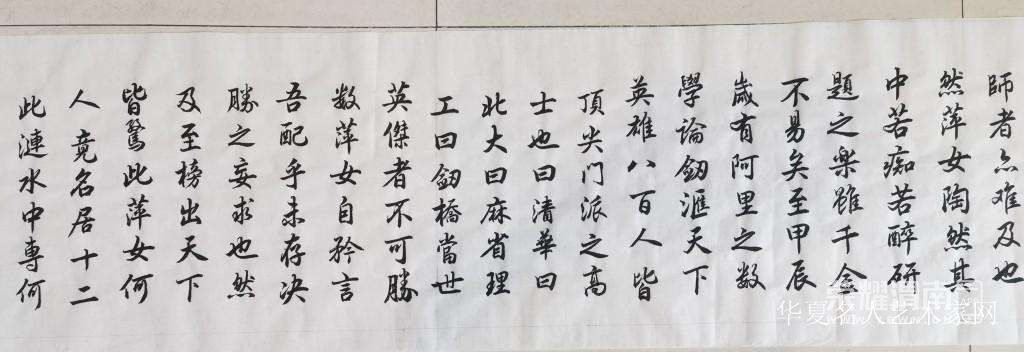 師者亦难及也
然萍女陶然其
中若痴若醉研
題之樂雖千金
不易矣至甲辰
歲有阿里之数
學論釰滙天下
英雄八百人皆
頂尖门派之高
士也曰清華曰
北大曰麻省理
工曰釰橋當世
英傑者不可勝
数萍女自矜言
吾配乎未存决
勝之妄求也然
及至榜出天下
皆驚此萍女何
人竟名居十二
此漣水中專何
荣耀渭南网
华夏名人艺术家网